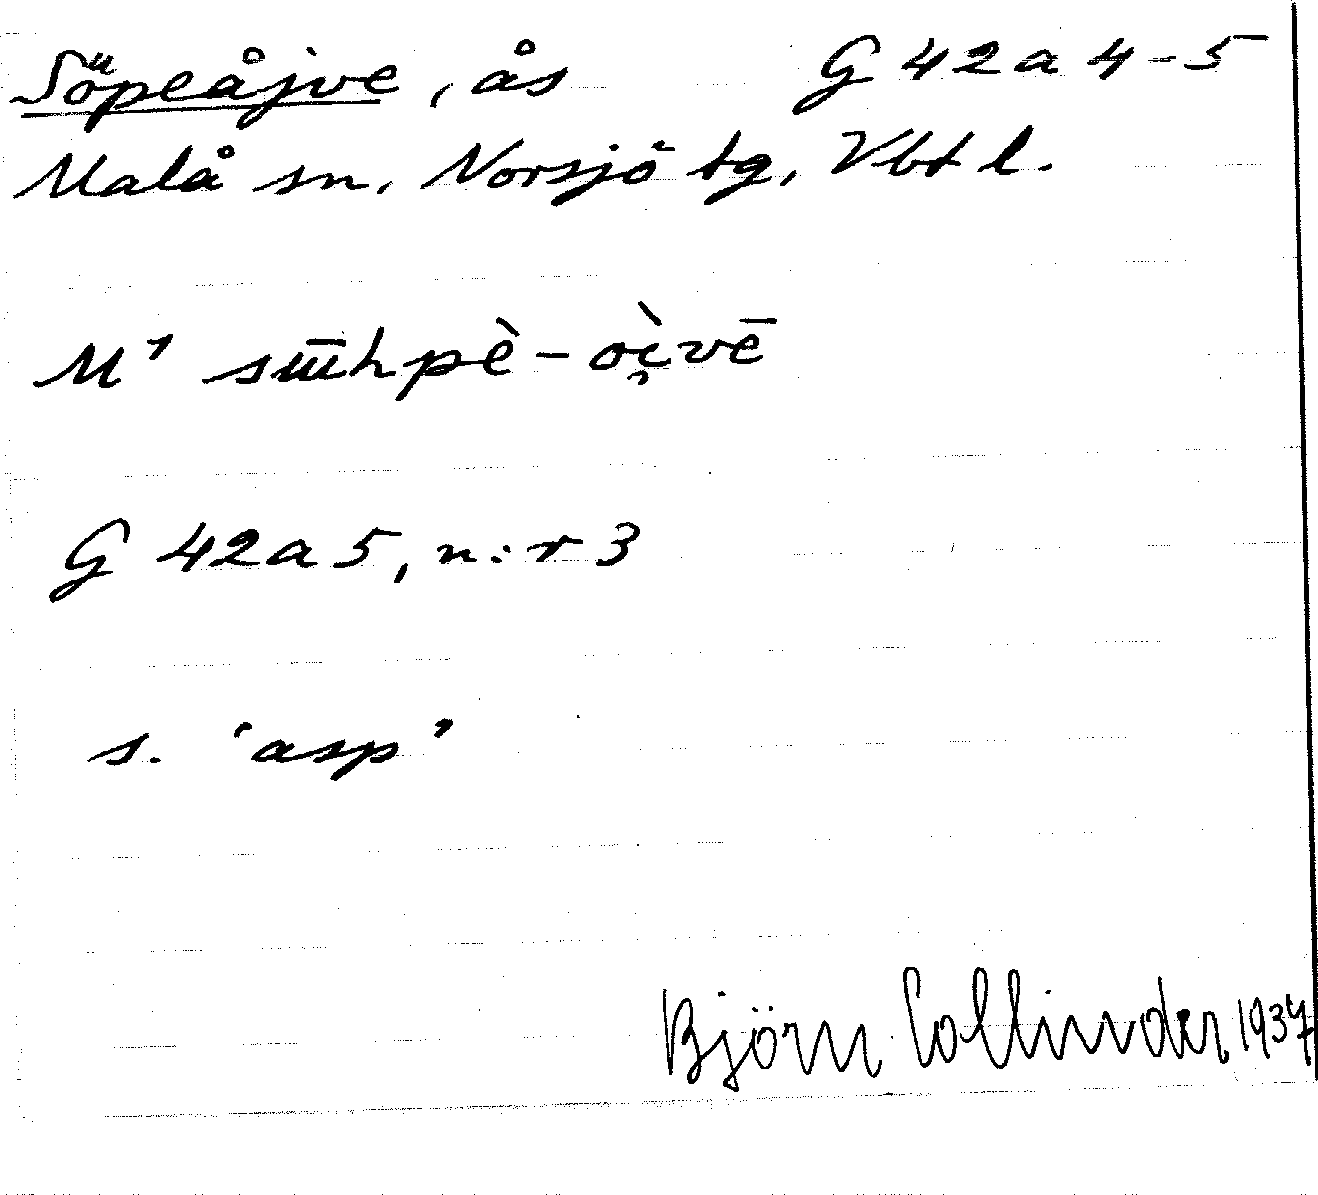 Söpeåjve, ås G 42 a 4-5
Malå sn, Norsjö tg, Vbt l.
M' sɯ̄hpè - oì̯vē
G 42 a 5, n:r 3
s. 'asp'
Björn Collinder 1937